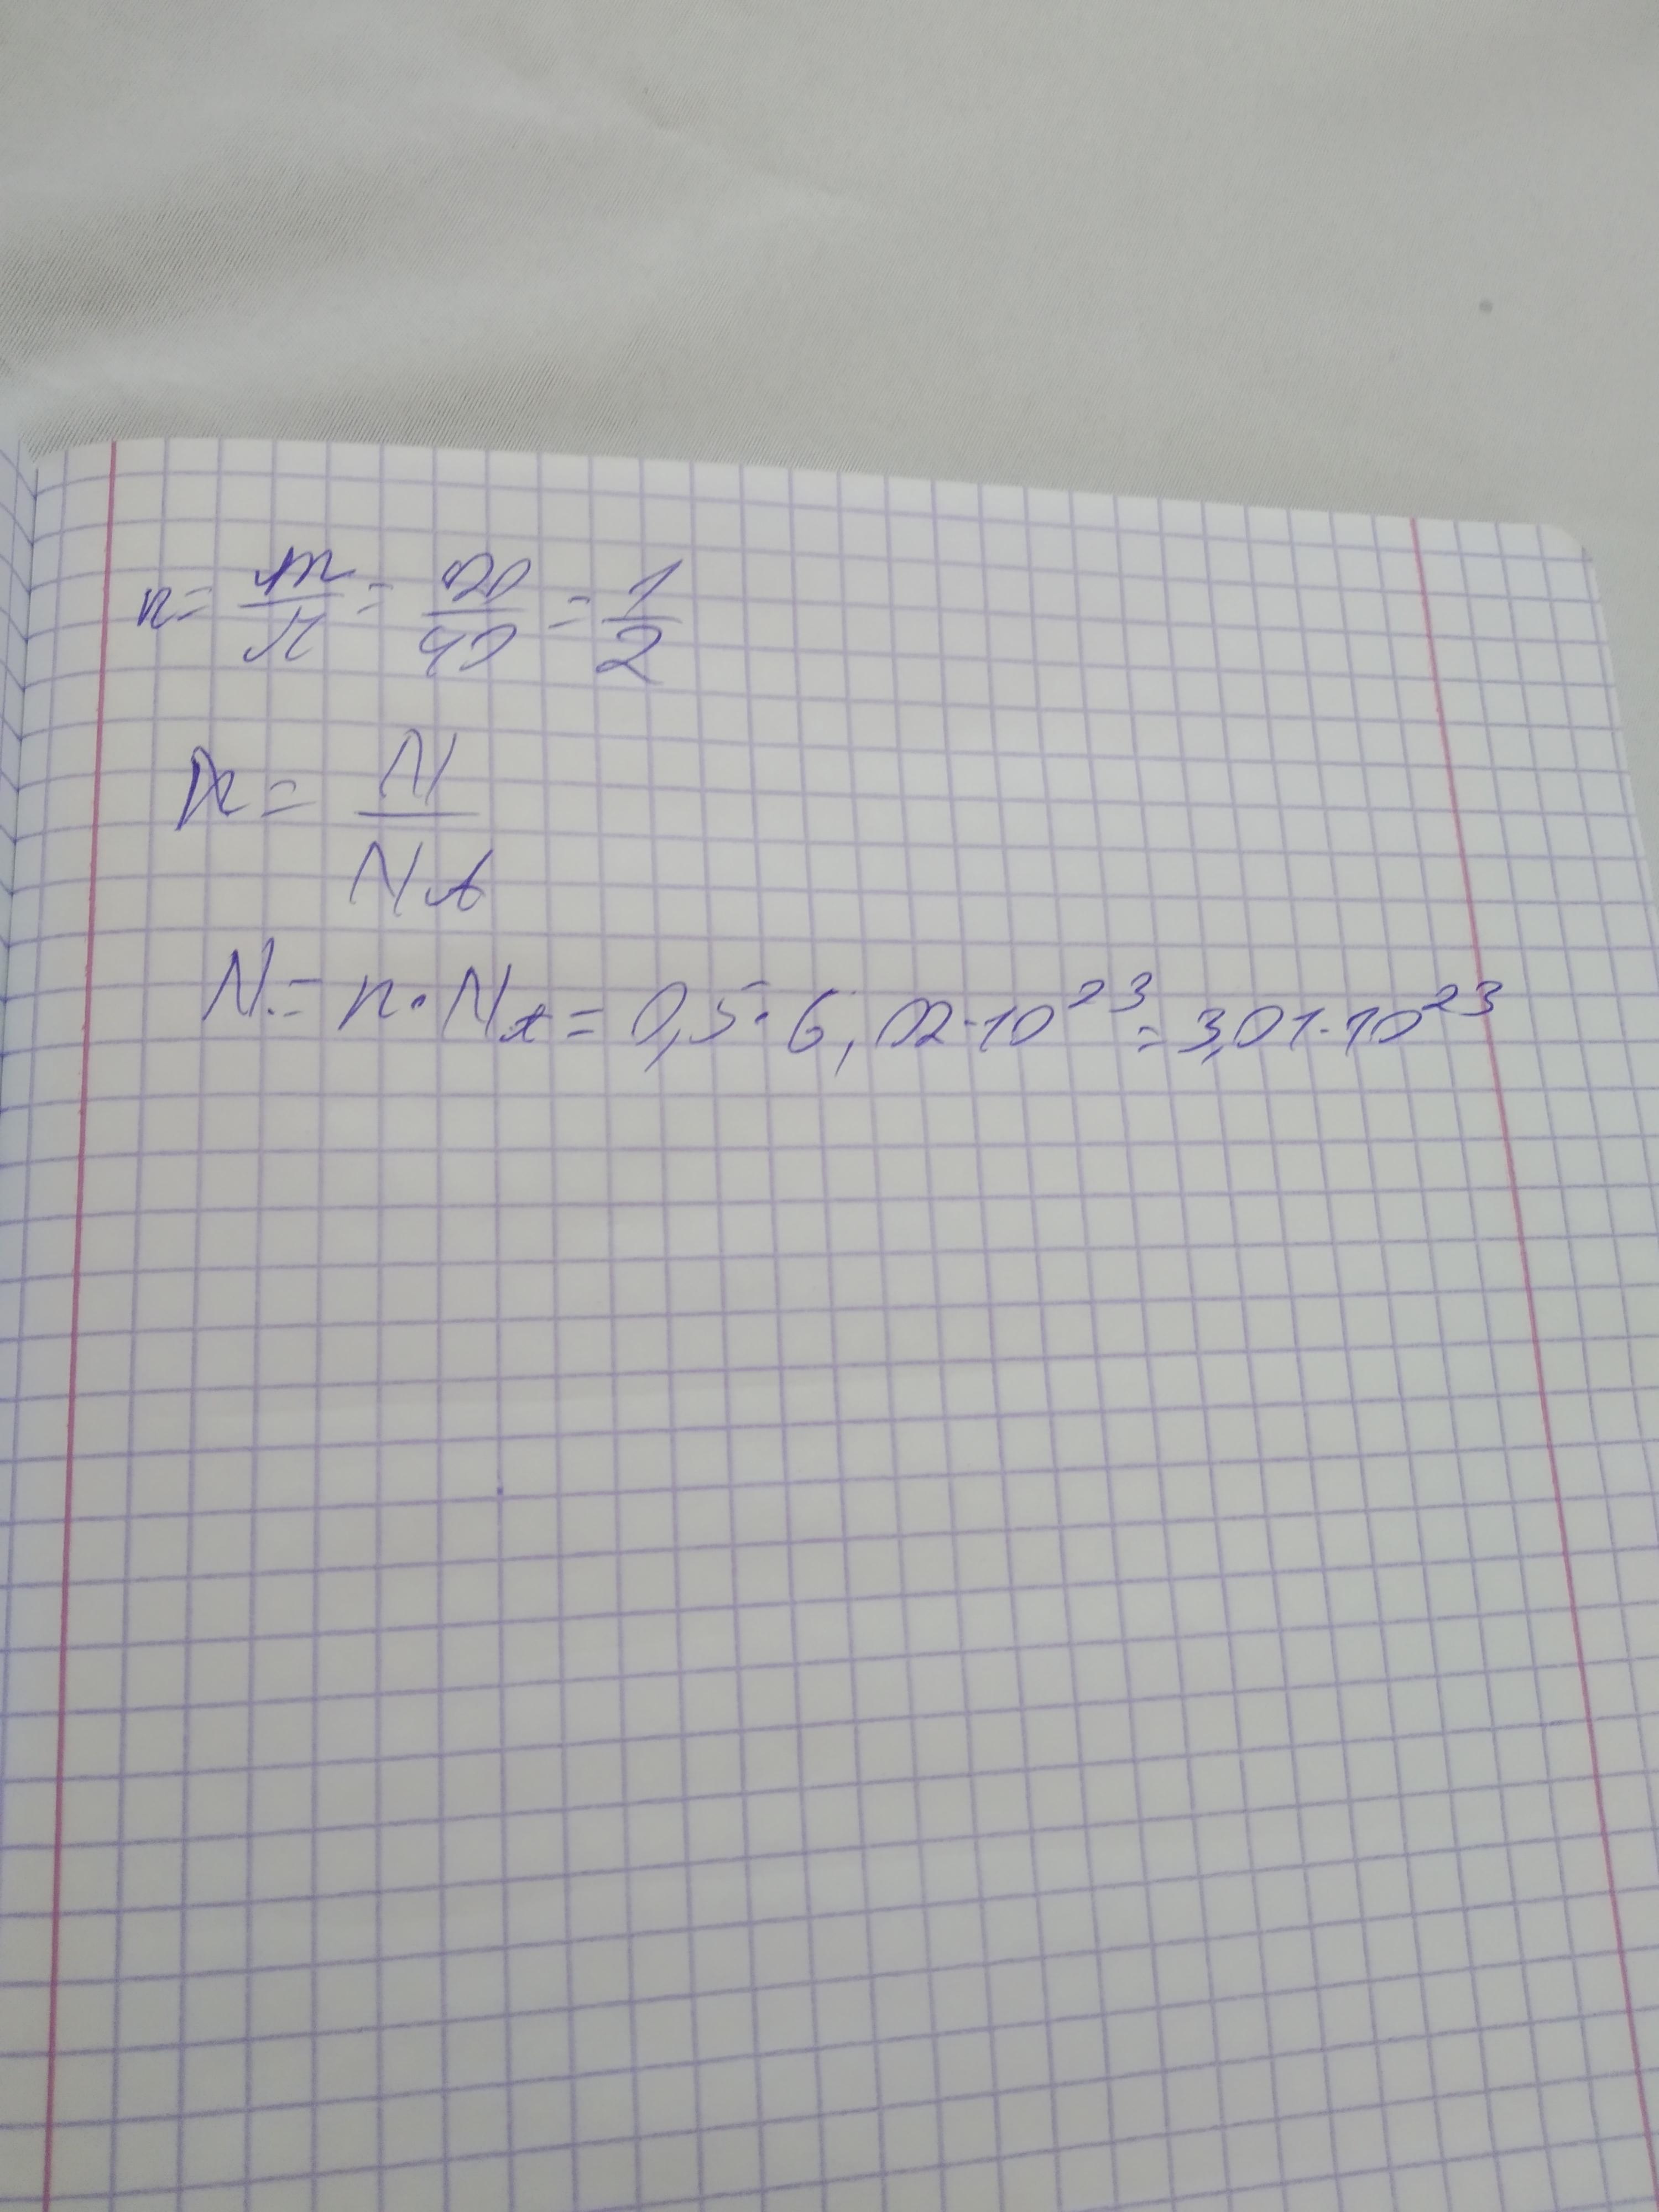 n = m/M = 20/40 = 1/2
n = N/NA
N = n · NA = 0,5 · 6,02 · 10²³ = 3,01 · 10²³